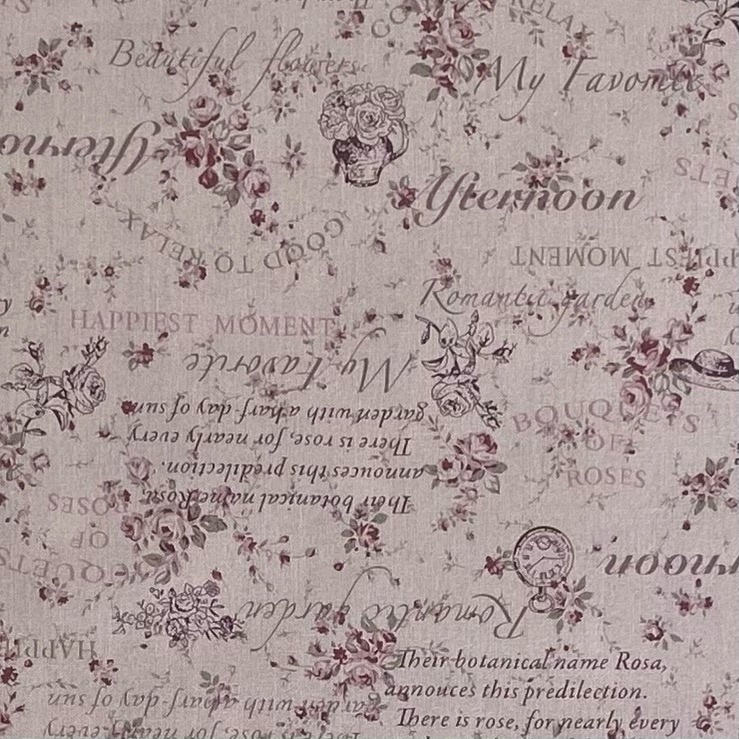 GOOD
RELAX
Beautiful flowers
My Favorite
Afternoon
Afternoon
GOOD TO RELAX
HAPPIEST MOMENT
Romantic garden
HAPPIEST MOMENT
My Favorite
BOUQUETS
OF
ROSES
Their botanical name Rosa,
annouces this predilection.
There is rose, for nearly every
garden with a harf day of sun
BOUQUETS
OF
ROSES
noon
Romantic garden
HAPPI
Their botanical name Rosa,
annouces this predilection.
There is rose, for nearly every
There is rose, for nearly every
garden with a harf day of sun